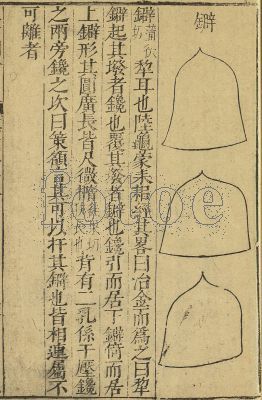 鐴
鐴犂耳也陸龜蒙耒耜經其畧曰冶金而為之曰犂
鐴起其墢者鑱也覆其墢者鐴也鑱引而居下鐴偃而居
上鐴形其圓廣長皆尺微橢背有二乳係于壓鑱
之兩旁鑱之次曰策額言其可以扞其鐴也皆相連屬不
可離者